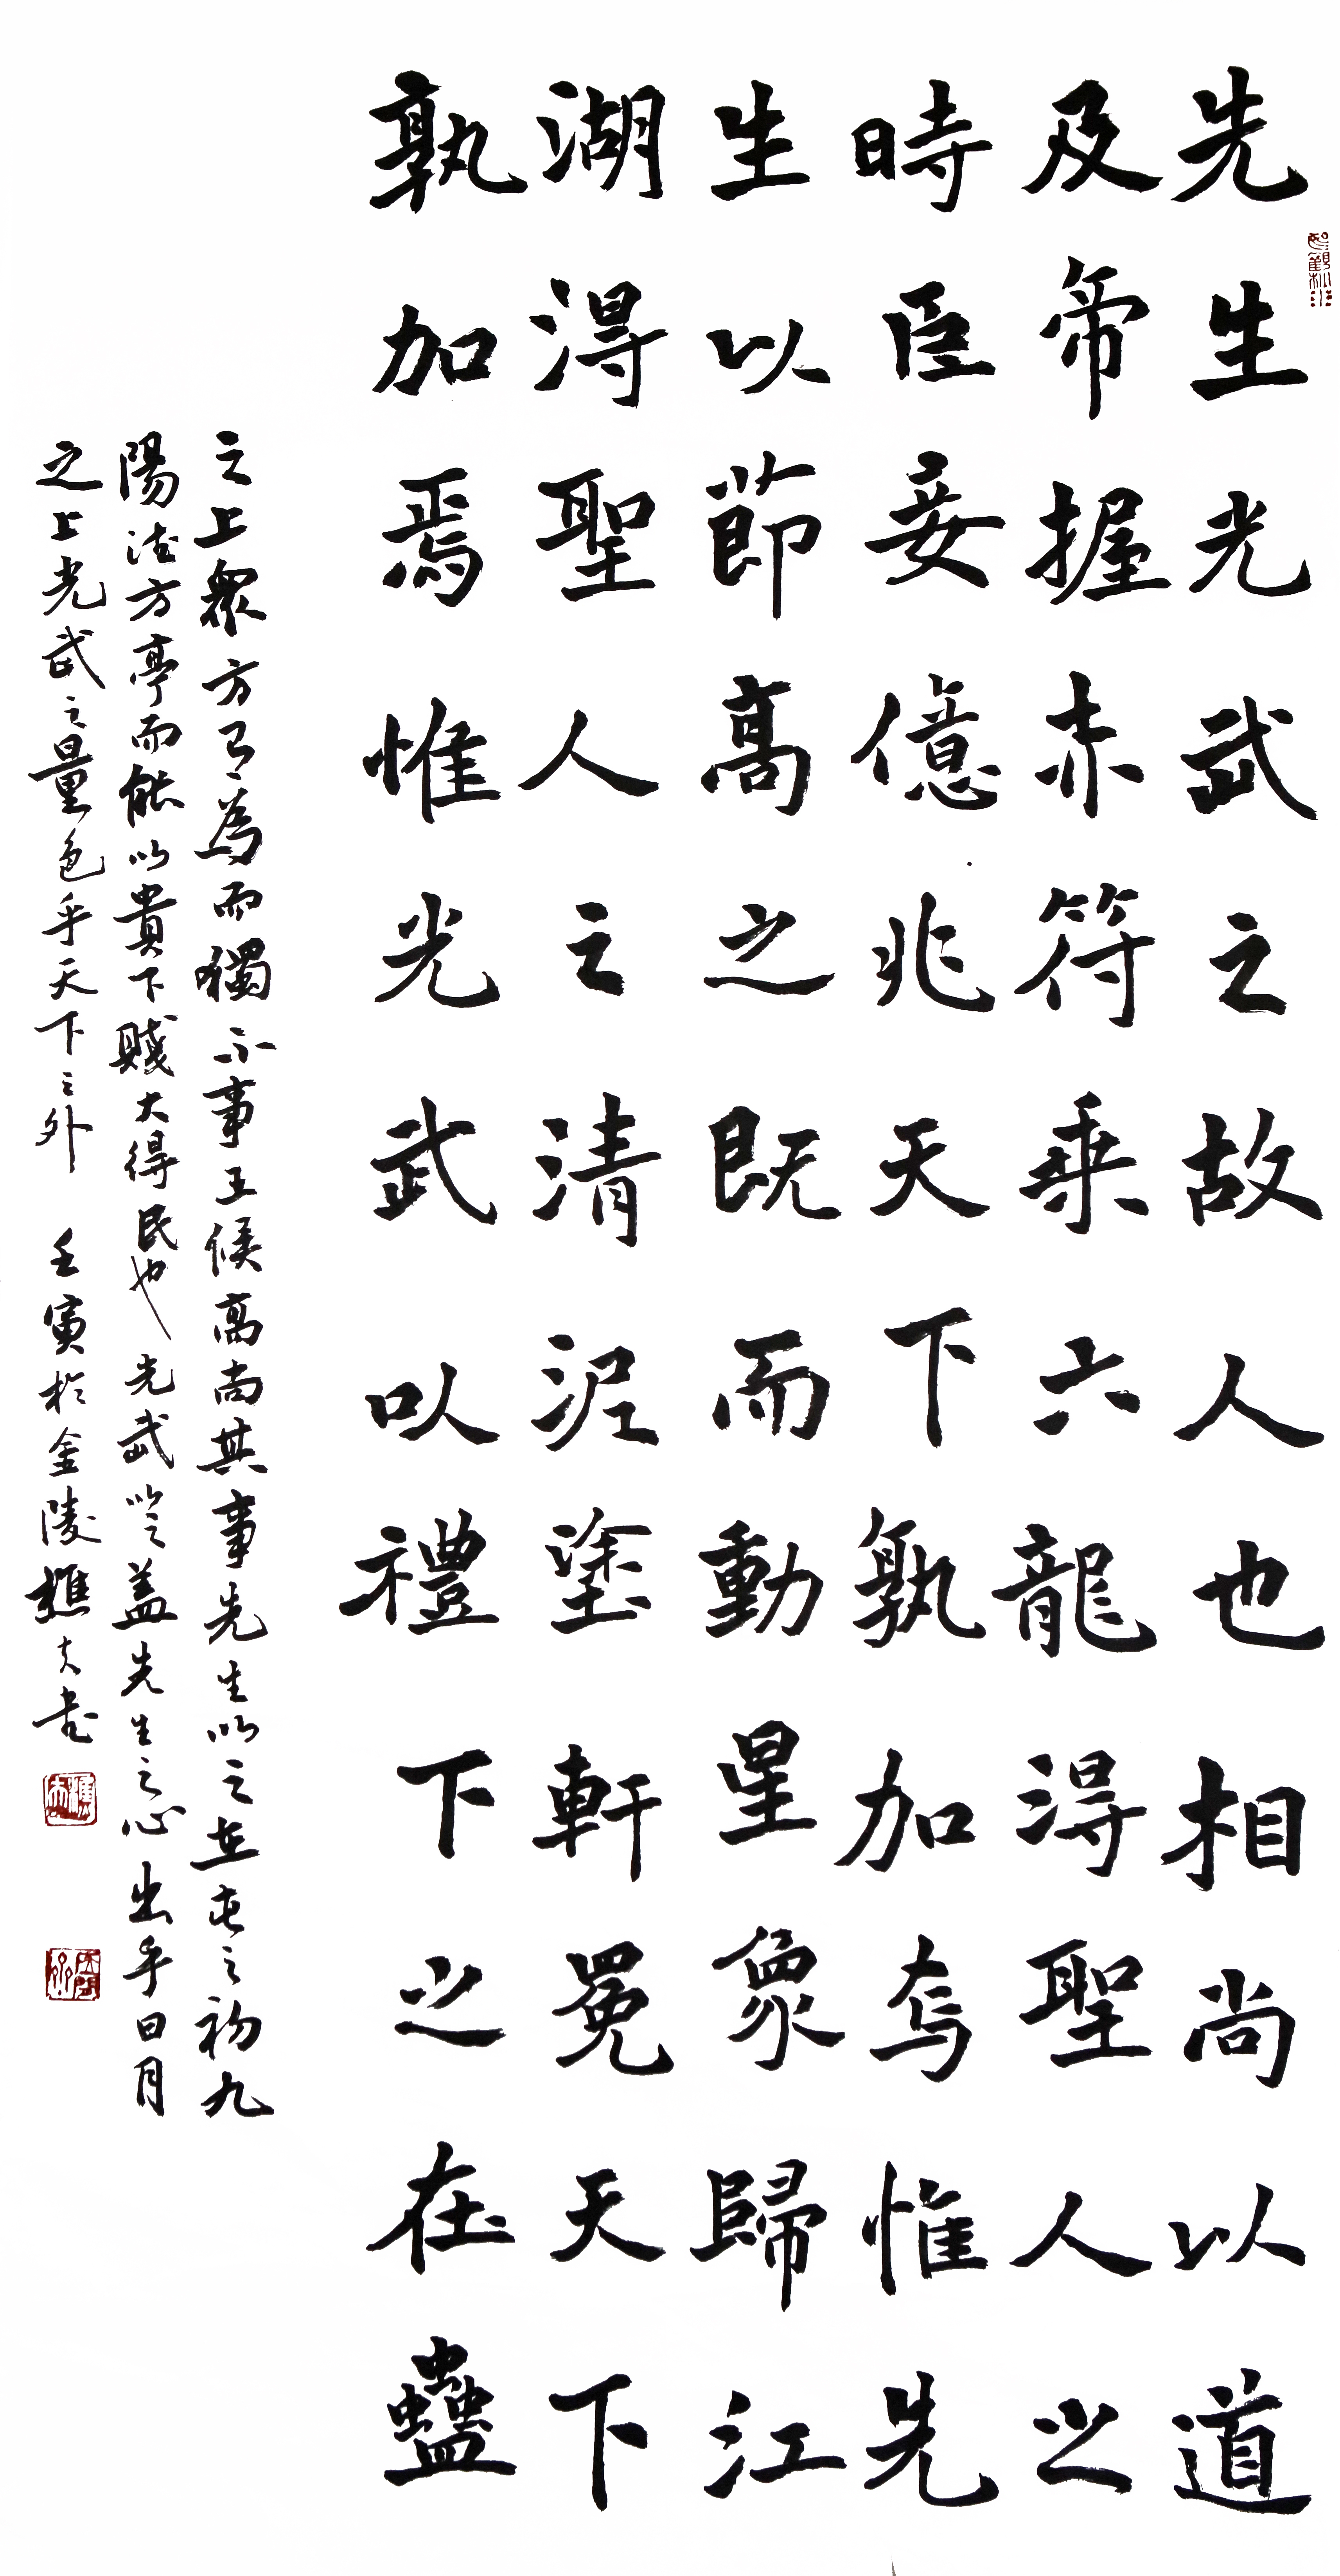 先生光武之故人也相尚以道
及帝握赤符乘六龍得聖人之
時臣妾億兆天下孰加焉惟先
生以節高之既而動星象歸江
湖得聖人之清泥塗軒冕天下
孰加焉惟光武以禮下之在蠱
之上眾方有為而獨不事王候高尚其事先生以之在屯之初九
陽德方亨而能以貴下賤大得民也光武以之蓋先生之心出乎日月
之上光武之量包乎天下之外 壬寅於金陵樵夫書